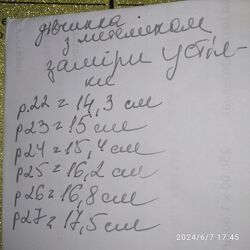 дівчинка
з метеликом
заміри устіл-
ки
р.22 = 14,3 см
р23 = 15 см
р24 = 15,4 см
р25 = 16,2 см
р26 = 16,8 см
р27 = 17,5 см
2024/6/7 17:45